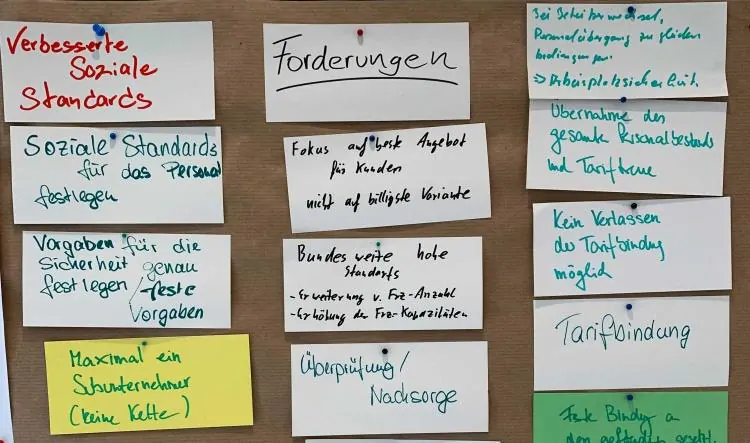 Verbesserte
Soziale
Standards
Soziale Standards
für das Personal
festlegen
Vorgaben für die
Sicherheit genau
festlegen feste
Vorgaben
Maximal ein
Subunternehmer
(keine Kette)
Forderungen
Fokus auf beste Angebot
für Kunden
nicht auf billigste Variante
Bundesweite hohe
Standarts
- Erweiterung v. Frz-Anzahl
- Erhöhung der Frz-Kapazitäten
Überprüfung/
Nachsorge
Bei Betreiberwechsel,
Personalübergang zu gleichen
bedingungen.
=> Arbeitsplatzsicherheit.
Übernahme des
gesamten Personalbestands
und Tariftreue
Kein Verlassen
der Tarifbindung
möglich
Tarifbindung
Feste Bindung a